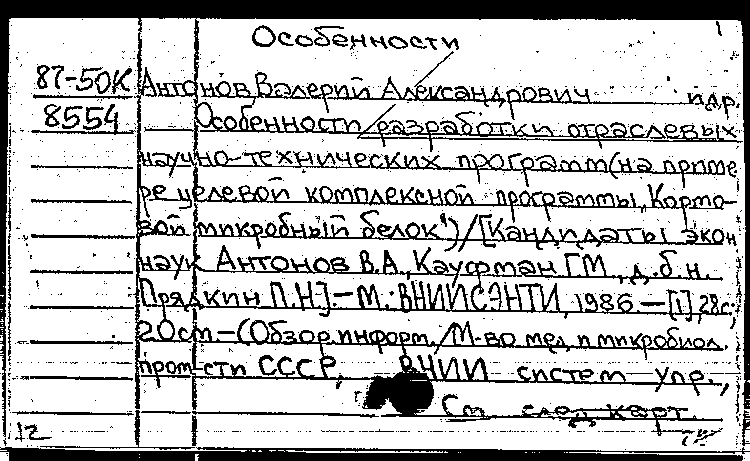 Особенности
87-50К Антонов Валерий Александрович и др.
8554 Особенности разработки отраслевых
научно-технических программ (на приме
ре целевой комплексной программы „Кормо-
вой микробный белок")/[Кандидаты экон
наук Антонов В.А., Кауфман Г.М., д.б.н.
Прядкин П.Н].-М.:ВНИИСЭНТИ, 1986.-[1],28с;
20см.-(Обзор.информ./М-во мед. и микробиол.
пром-сти СССР, ВНИИ систем упр.,
См след карт.
12